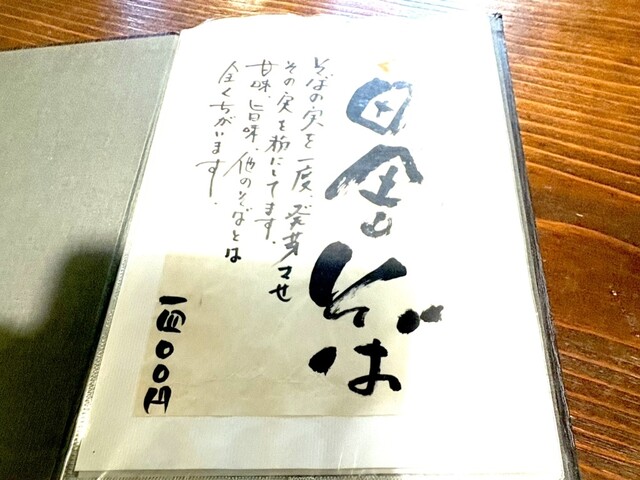 そば
そばの実を一度、発芽させ
その実を粉にしてます。
甘味、旨味、他のそばとは
全くちがいます。
一四〇〇円